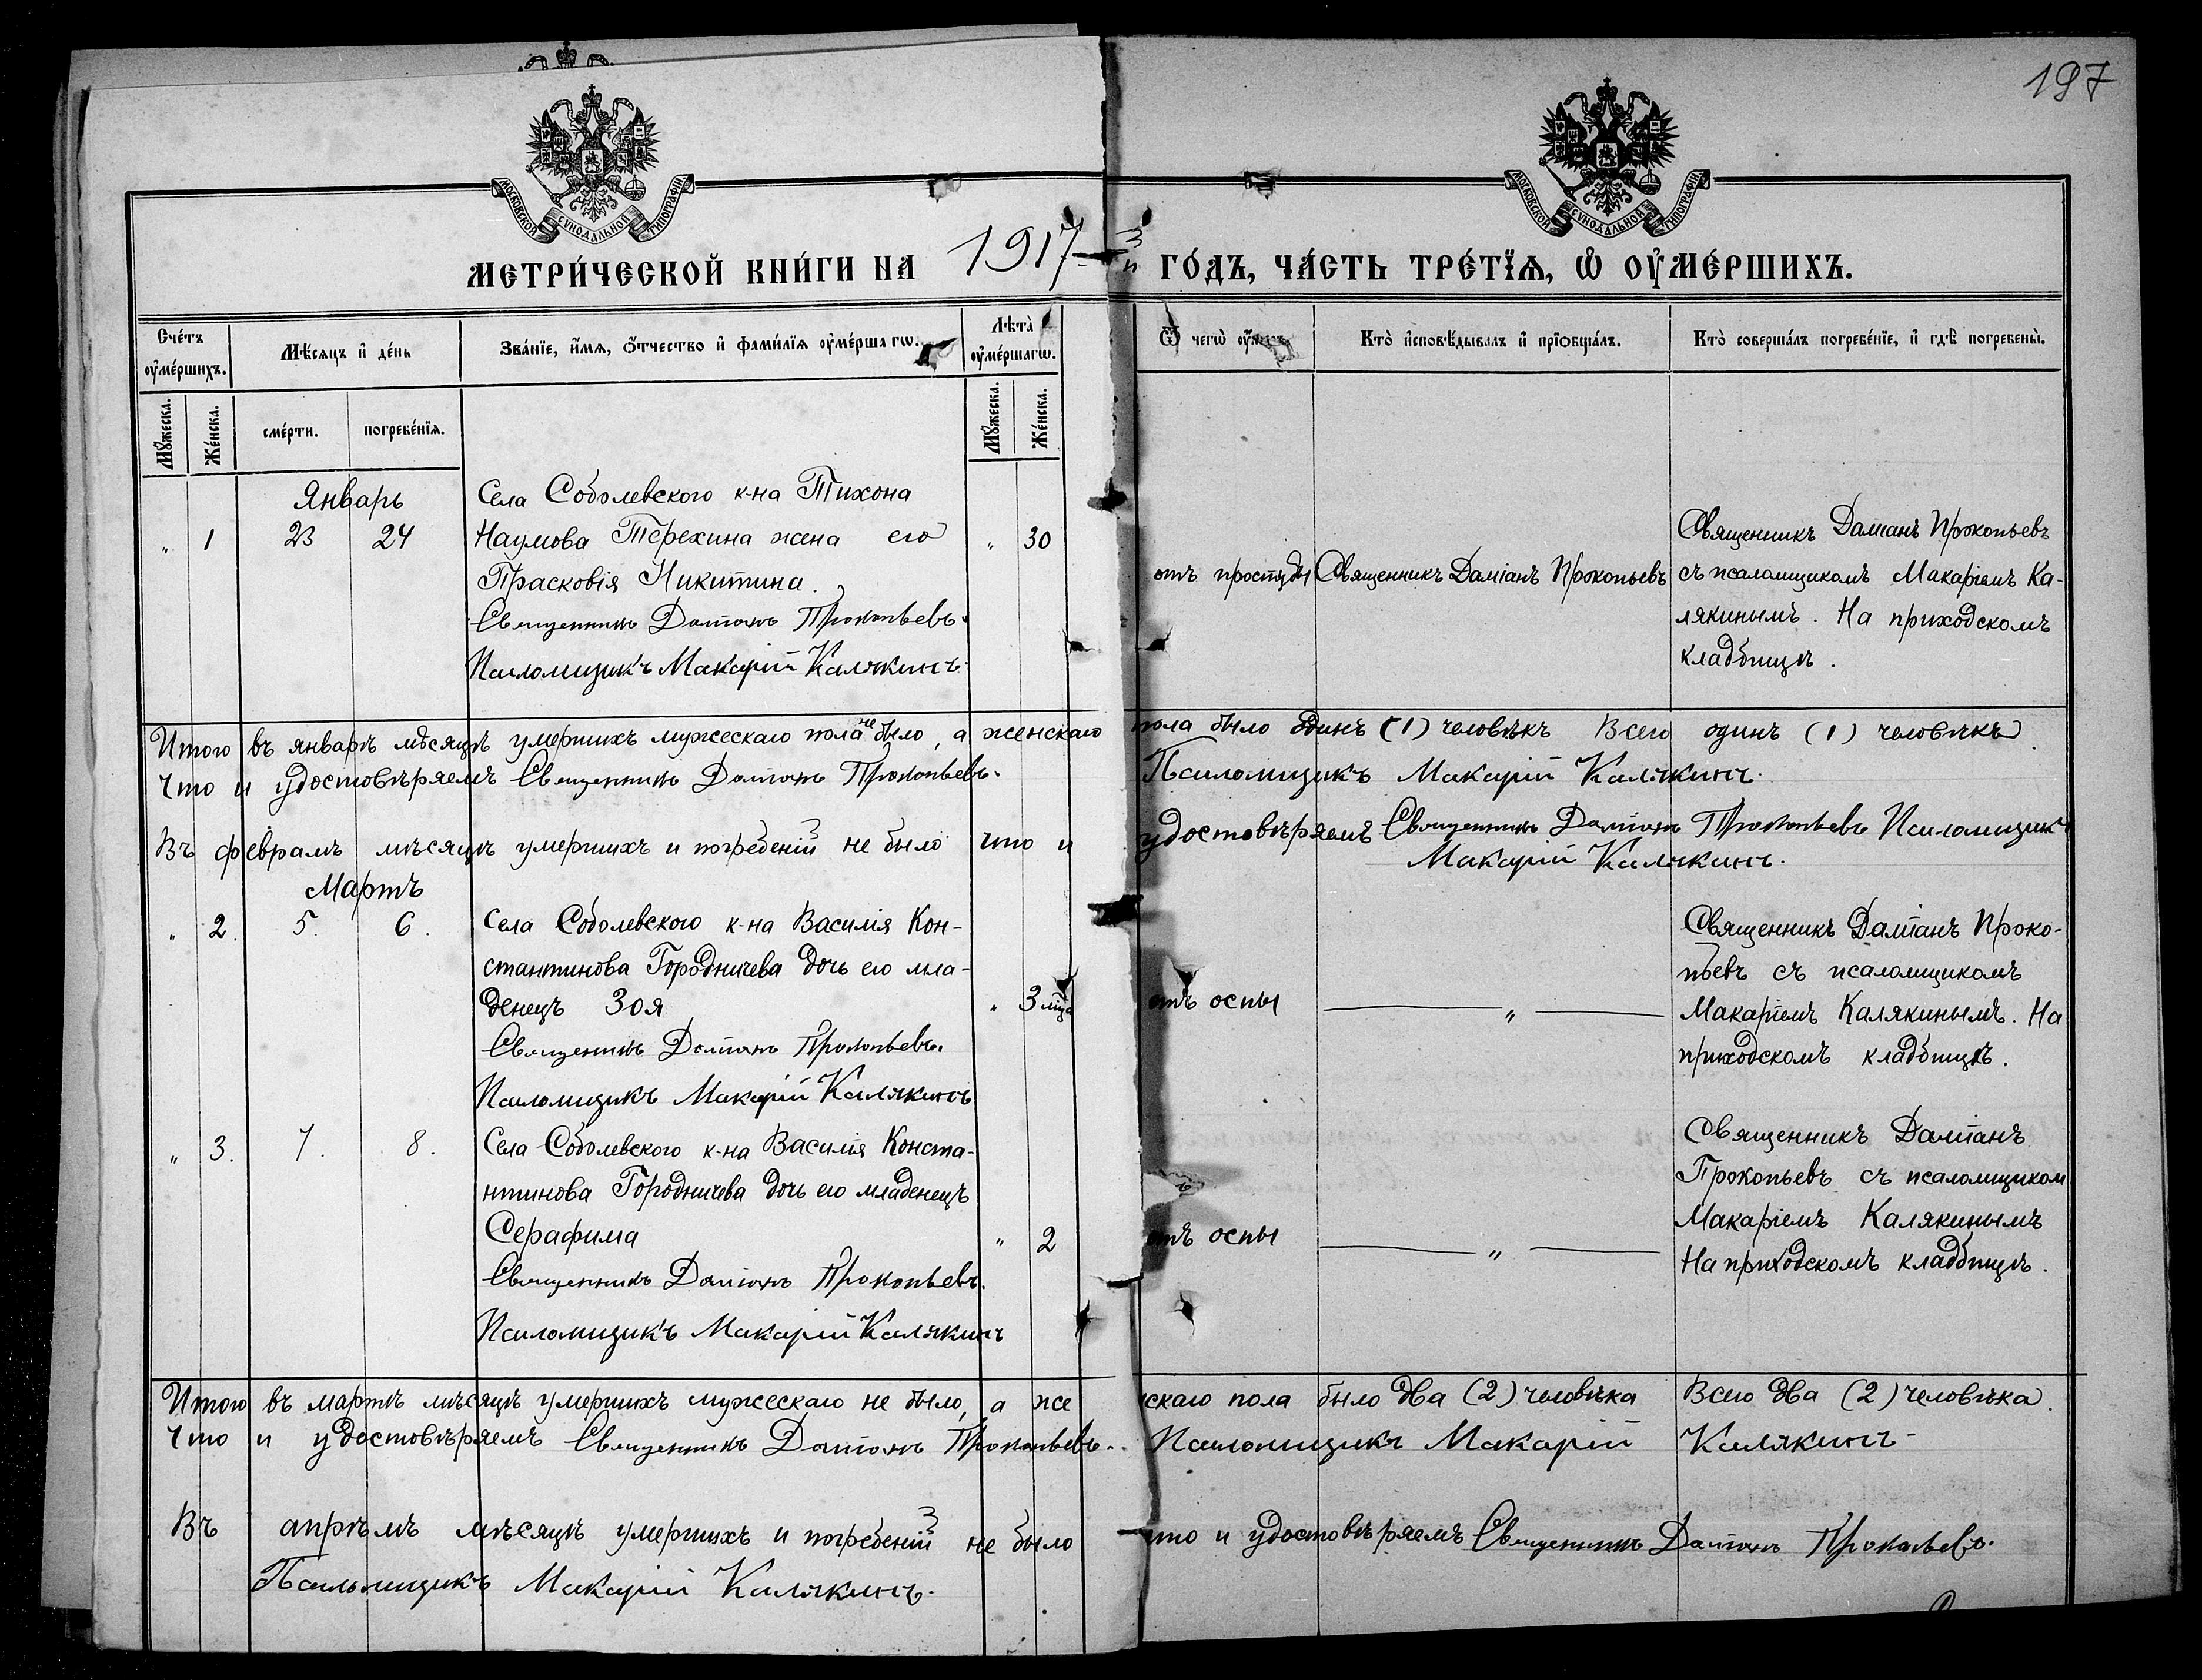 197
МОСКОВСКОЙ СѴНОДАЛЬНОЙ ТИПОГРАФІИ
МОСКОВСКОЙ СѴНОДАЛЬНОЙ ТИПОГРАФІИ
МЕТРИ́ЧЕСКОЙ КНИ́ГИ НА 1917-й ГО́ДЪ, ЧА́СТЬ ТРЕ́ТЇѦ, Ѡ҆ ОУ҆МЕ́РШИХЪ.
Сче́тъ оу҆ме́ршихъ.
Мѣ́сѧцъ и҆ де́нь
Зва́нїе, и҆́мѧ, ѻ҆́тчество и҆ фами́лїѧ оу҆ме́ршагѡ.
Лѣта̀ оу҆ме́ршагѡ.
Ѿ чегѡ̀
Кто̀ и҆сповѣ́дывалъ и҆ прїѡбща́лъ.
Кто̀ соверша́лъ погребе́нїе, и҆ гдѣ̀ погребены̀.
Мꙋ́жеска.
Же́нска.
сме́рти.
погребе́нїѧ.
Мꙋ́жеска.
Же́нска.
Январь
„ 1 23 24
Села Соболевского к-на Тихона
Наумова Терехина жена его
Прасковія Никитина.
Священникъ Даміанъ Прокопьевъ.
Псаломщикъ Макарій Калякинъ.
„ 30
отъ простуды
Священникъ Даміанъ Прокопьевъ
Священникъ Даміанъ Прокопьевъ
съ псаломщикомъ Макаріемъ Ка-
лякинымъ. На приходскомъ
кладбищѣ.
Итого въ январѣ мѣсяцѣ умершихъ мужескаго пола не было, а женскаго пола было одинъ (1) человѣкъ Всего одинъ (1) человѣкъ.
Что и удостовѣряемъ Священникъ Даміанъ Прокопьевъ. Псаломщикъ Макарій Калякинъ.
Въ февралѣ мѣсяцѣ умершихъ и погребеній не было что и удостовѣряемъ Священникъ Даміанъ Прокопьевъ Псаломщикъ
Макарій Калякинъ.
Мартъ
„ 2. 5. 6.
Села Соболевского к-на Василія Кон-
стантинова Городничева дочь его мла-
денецъ Зоя
Священникъ Даміанъ Прокопьевъ.
Псаломщикъ Макарій Калякинъ
„ 3 мца
отъ оспы
„
Священникъ Даміанъ Проко-
пьевъ съ псаломщикомъ
Макаріемъ Калякинымъ. На
приходскомъ кладбищѣ.
„ 3. 7. 8.
Села Соболевского к-на Василія Конста-
нтинова Городничева дочь его младенецъ
Серафима
Священникъ Даміанъ Прокопьевъ.
Псаломщикъ Макарій Калякинъ
„ 2
отъ оспы
„
Священникъ Даміанъ
Прокопьевъ съ псаломщиком
Макаріемъ Калякинымъ
На приходскомъ кладбищѣ.
Итого въ мартѣ мѣсяцѣ умершихъ мужескаго не было, а же нскаго пола было два (2) человѣка Всего два (2) человѣка.
Что и удостовѣряемъ Священникъ Даміанъ Прокопьевъ. Псаломщикъ Макарій Калякинъ
Въ апрѣлѣ мѣсяцѣ умершихъ и погребеній не было что и удостовѣряемъ Священникъ Даміанъ Прокопьевъ.
Псаломщикъ Макарій Калякинъ.